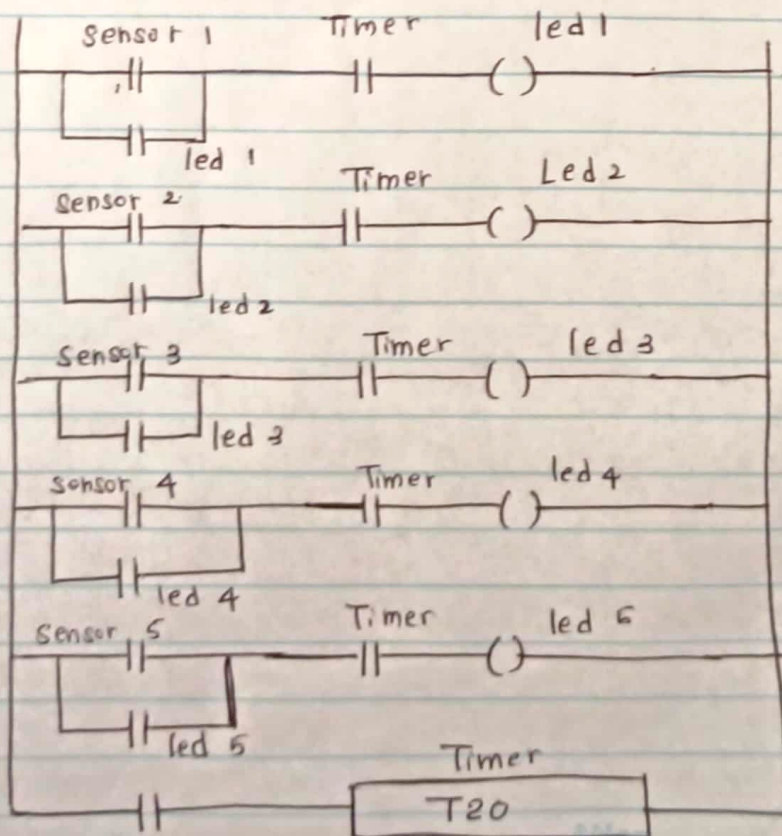 Sensor 1 Timer led 1
led 1
Sensor 2 Timer Led 2
led 2
Sensor 3 Timer led 3
led 3
Sensor 4 Timer led 4
led 4
Sensor 5 Timer led 5
led 5
Timer
T20